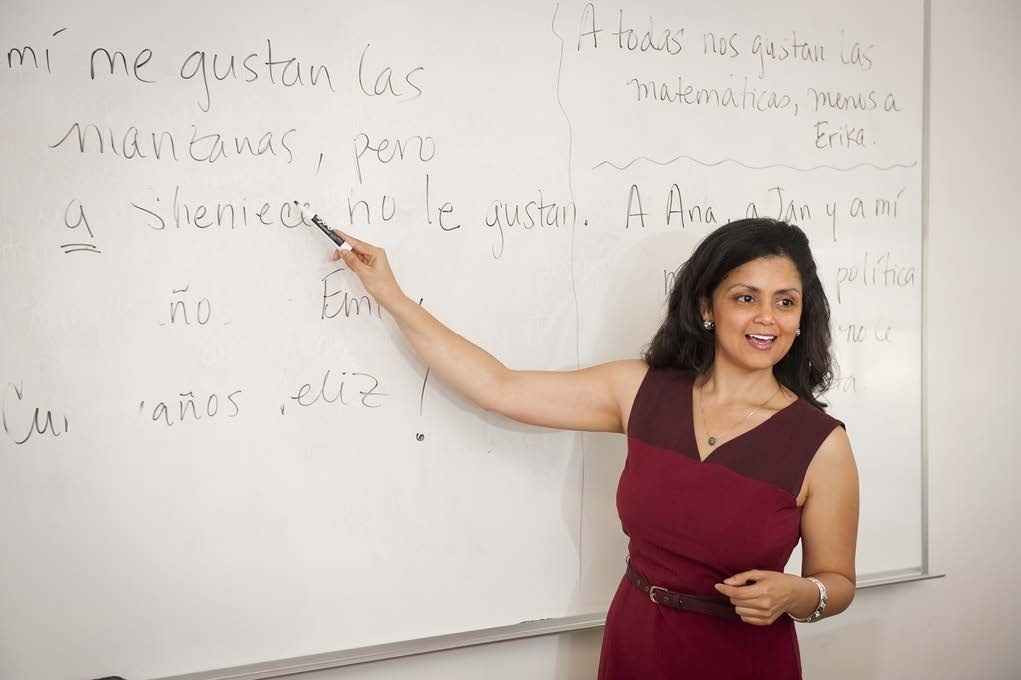 mí me gustan las
mantanas, pero
a no le gustan.
ño
años eliz !
A todas nos gustan las
matemáticas, menos a
Erika.
A Ana, a Jan y a mí
política
no le